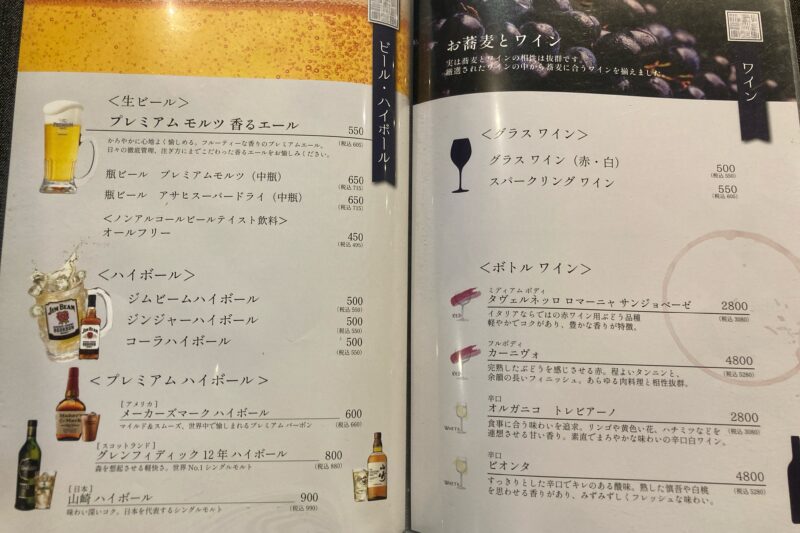 ビール・ハイボール
<生ビール>
プレミアム モルツ 香るエール 550
(税込 605)
かろやかに心地よく愉しめる。フルーティーな香りのプレミアムエール。
日々の徹底管理、注ぎ方にまでこだわった香るエールをお愉しみください。
瓶ビール プレミアムモルツ（中瓶） 650
(税込 715)
瓶ビール アサヒスーパードライ（中瓶） 650
(税込 715)
<ノンアルコールビールテイスト飲料>
オールフリー 450
(税込 495)
<ハイボール>
ジムビームハイボール 500
(税込 550)
ジンジャーハイボール 500
(税込 550)
コーラハイボール 500
(税込 550)
JIM BEAM
<プレミアム ハイボール>
[アメリカ]
メーカーズマーク ハイボール 600
(税込 660)
マイルド&スムーズ、世界中で愉しまれるプレミアム バーボン
[スコットランド]
グレンフィディック 12 年 ハイボール 800
(税込 880)
森を想起させる軽快さ。世界 No.1 シングルモルト
[日本]
山崎 ハイボール 900
(税込 990)
味わい深いコク。日本を代表するシングルモルト
ワイン
お蕎麦とワイン
実は蕎麦とワインの相性は抜群です。
厳選されたワインの中から蕎麦に合うワインを揃えました。
<グラス ワイン>
グラス ワイン（赤・白） 500
(税込 550)
スパークリング ワイン 550
(税込 605)
<ボトル ワイン>
ミディアム ボディ
タヴェルネッロ ロマーニャ サンジョベーゼ 2800
(税込 3080)
イタリアならではの赤ワイン用ぶどう品種
軽やかでコクがあり、豊かな香りが特徴。
フルボディ
カーニヴォ 4800
(税込 5280)
完熟したぶどうを感じさせる赤。程よいタンニンと、
余韻の長いフィニッシュ。あらゆる肉料理と相性抜群。
辛口
オルガニコ トレビアーノ 2800
(税込 3080)
食事に合う味わいを追求。リンゴや黄色い花、ハチミツなどを
連想させる甘い香り。素直でまろやかな味わいの辛口白ワイン。
辛口
ビオンタ 4800
(税込 5280)
すっきりとした辛口でキレのある酸味。熟した杏や白桃
を思わせる香りがあり、みずみずしくフレッシュな味わい。